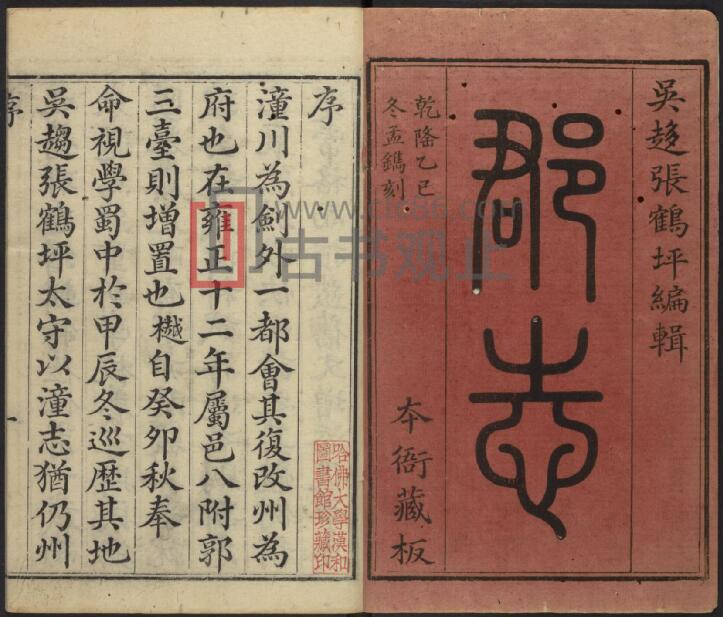 吳趨張鶴坪編輯
郡志
本衙藏板
乾隆乙巳
冬孟鐫刻
序
潼川為劍外一都會其復改州為
府也在雍正十二年屬邑八附郭
三臺則增置也樾自癸卯秋奉
命視學蜀中於甲辰冬巡歷其地
吳趨張鶴坪太守以潼志猶仍州
序
一
哈佛大學漢和
圖書館珍藏印
www.cn686.com
古书观止